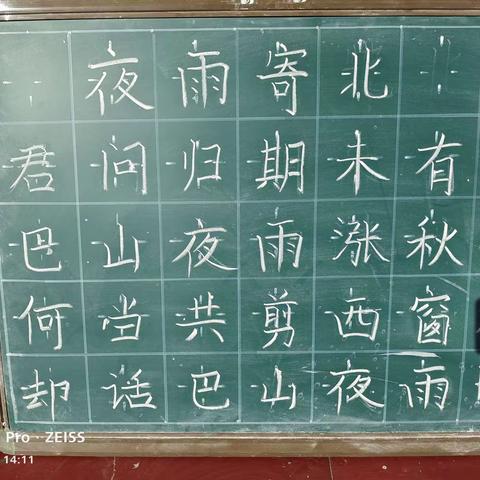 夜雨寄北
君问归期未有
巴山夜雨涨秋
何当共剪西窗
却话巴山夜雨
Pro · ZEISS
14:11